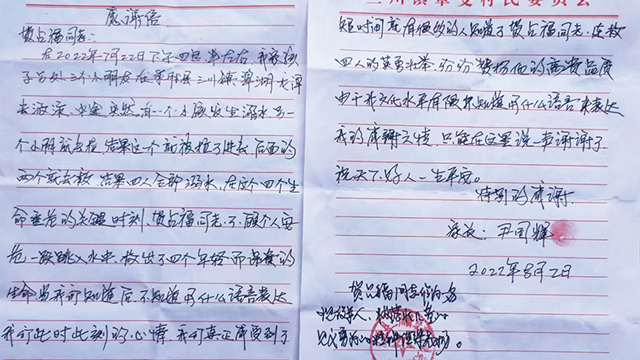 感谢信
贺占福同志:
在2022年7月22日下午四点半左右, 我家孩
子与处三个小朋友在 三川镇 大潭
去游泳, 突然, 有一个小孩发生溺水另一
个小朋去拉, 结果这一个就被拉了进去, 后面的
两个就去救 结果四人全部溺水, 在这个四个生
命垂危的关键时刻, 贺占福同志, 不顾个人安
危一跃跳入水中, 救出了四个年轻而宝贵的
生命当我们知道后, 不知道用什么语言表达
我们此时此刻的心情, 我们真正感受到了
村民委员会
短时间里有很多的人知道了贺占福同志, 连救
四人的英勇壮举, 纷纷赞扬他的高贵品质
由于我文化水平有限不知道用什么语言来表达
我的感谢之情, 只能在这里说一声谢谢了.
祝天下好人一生平安.
特别的感谢.
家长: 尹国辉
2022年8月2日